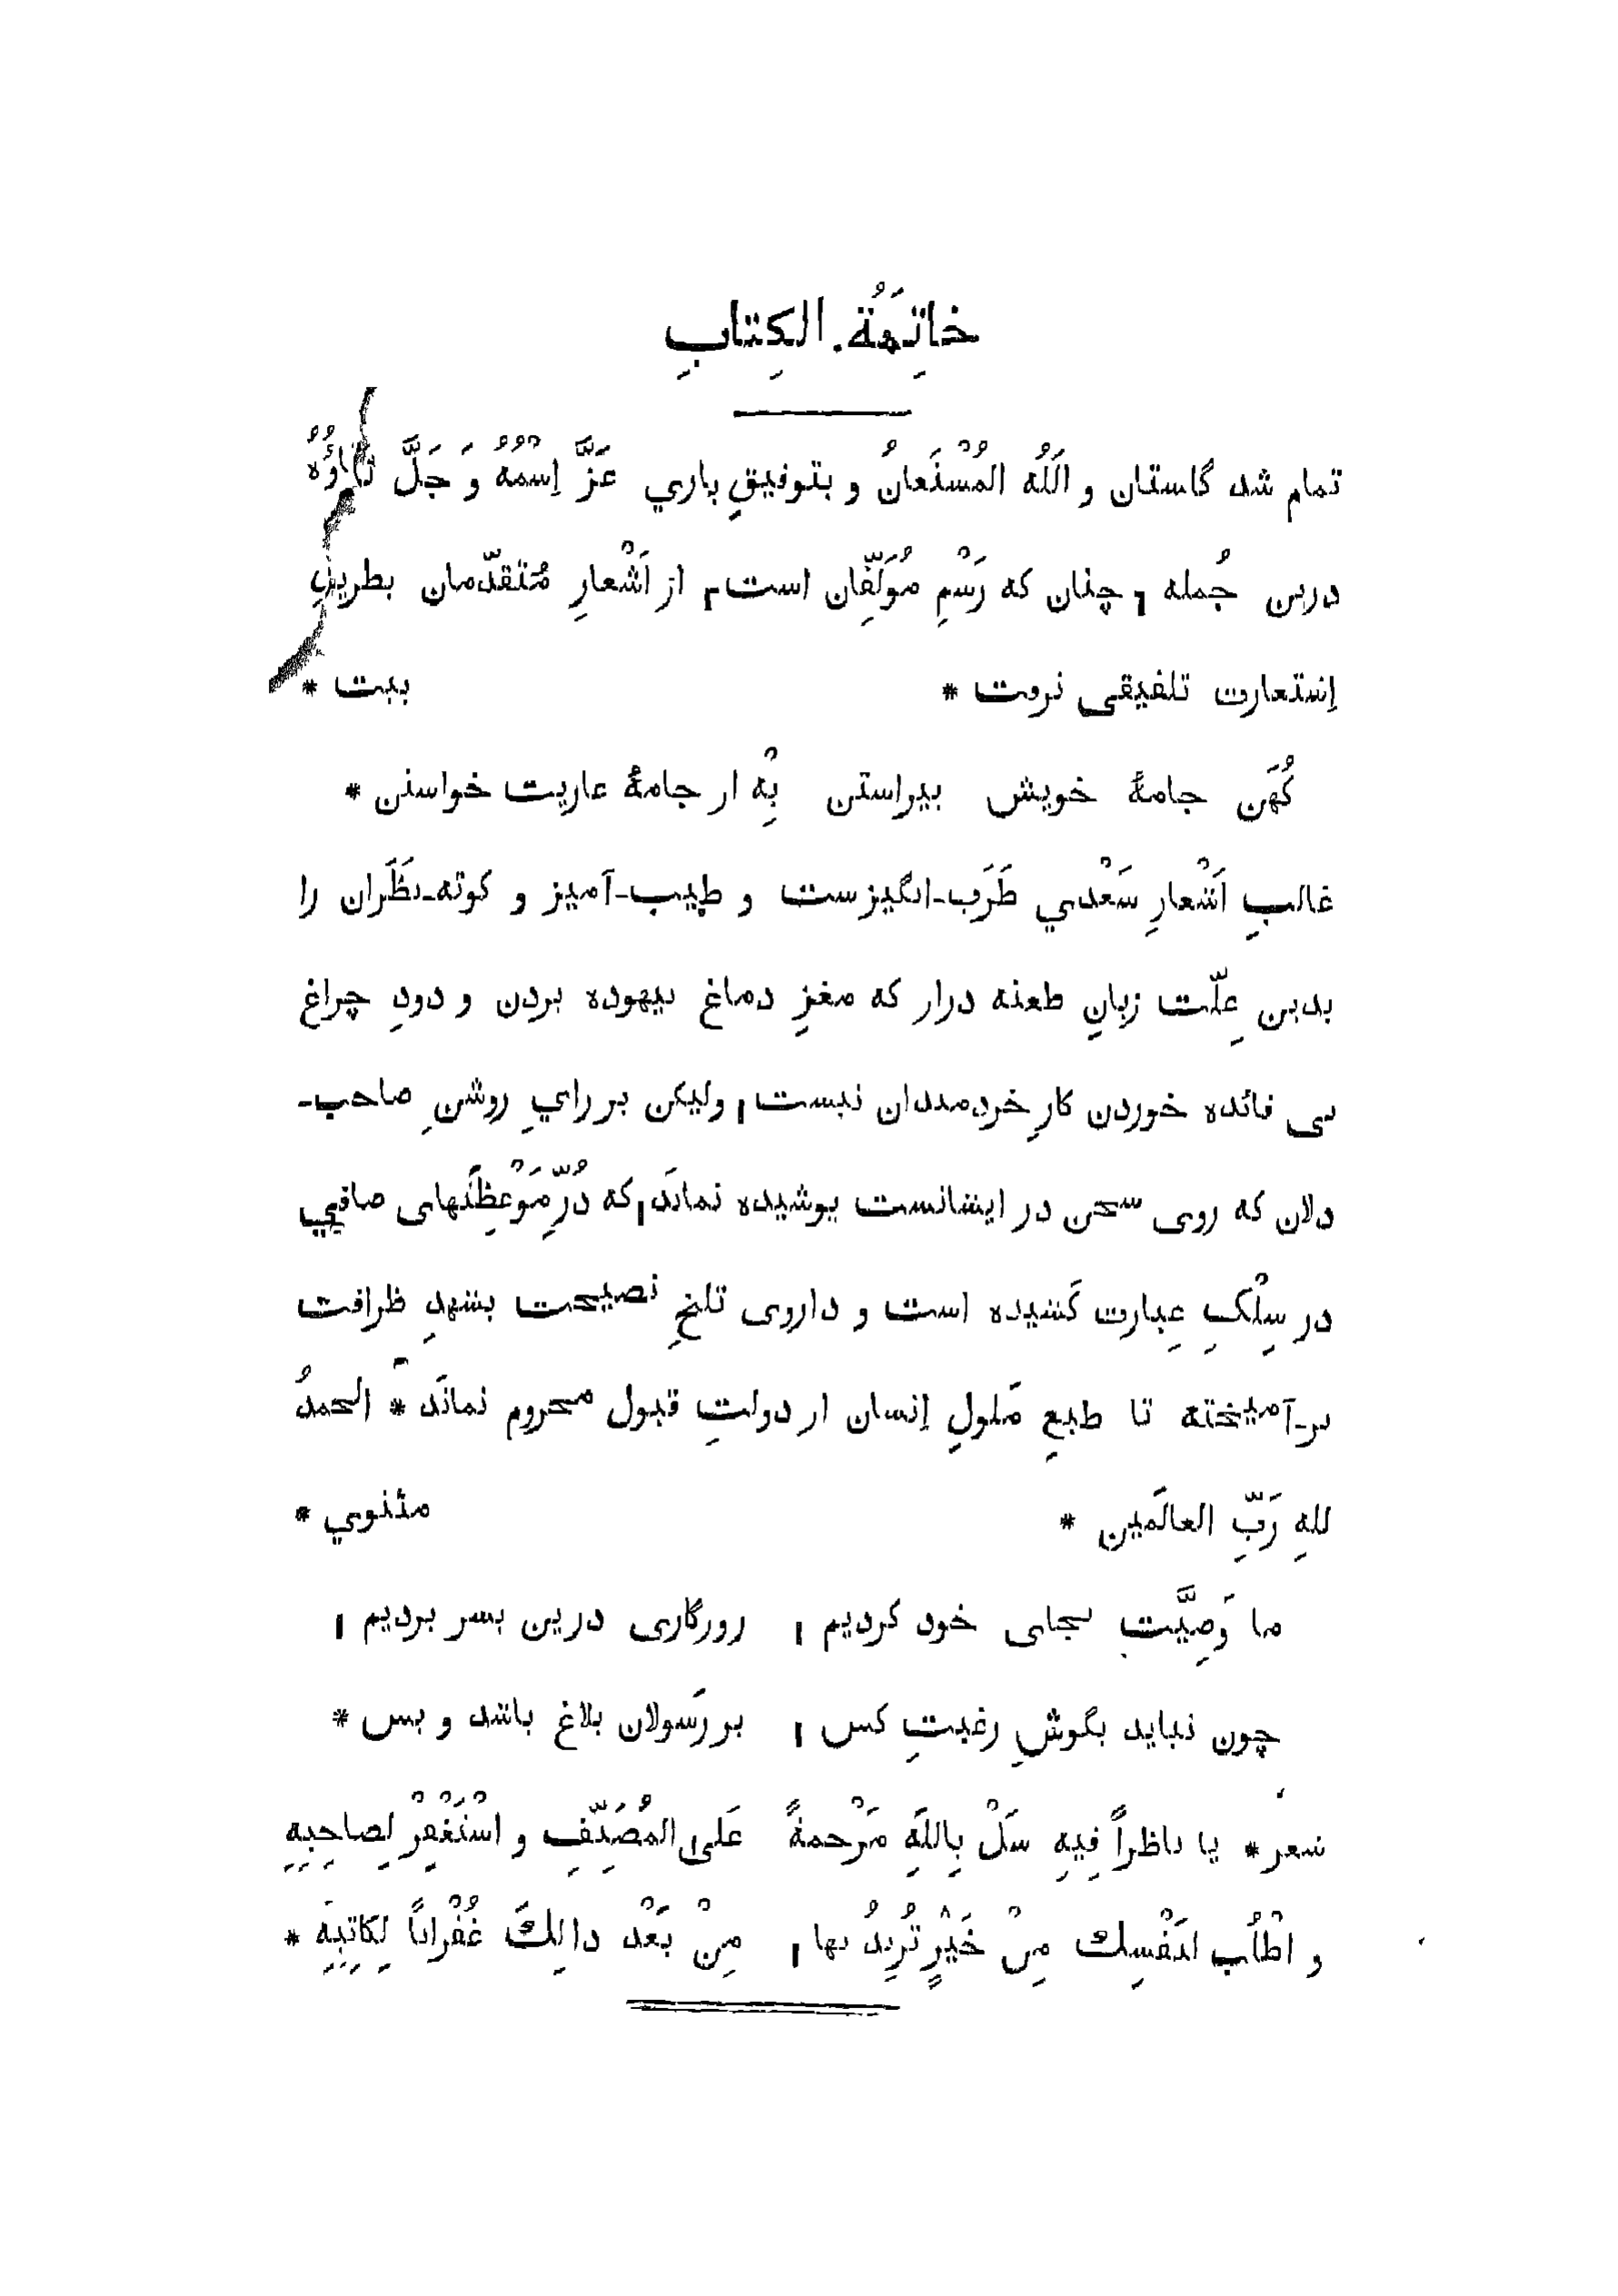 خاتِمَةُ الكِتابِ
تمام شد گلستان و اَللّٰهُ المُسْتَعانُ و بتوفیقِ باري عَزَّ اِسْمُهُ وَ جَلَّ ثَناؤُهُ
درین جُمله ، چنان که رَسْمِ مُوَلِّفان است ، از اَشْعارِ مُتقدّمان بطریقِ
اِستعارت تلفیقی نرفت * بیت *
کُهَن جامهٔ خویش پیراستن بِهْ از جامهٔ عاریت خواستن *
غالبِ اَشْعارِ سَعْدي طَرَب-انگیزست و طیب-آمیز و کوته-نظَران را
بدین عِلّت زبانِ طعنه دراز که مغزِ دماغ بیهوده بردن و دودِ چراغ
بی فائده خوردن کارِ خردمندان نیست ، ولیکن بر رایِ روشنِ صاحب-
دلان که روی سخن در ایشانست پوشیده نمانَد ، که دُرِّ مَوْعِظَتهای صافي
در سِلْكِ عِبارت کَشیده است و داروی تلخِ نصیحت بشهدِ ظرافت
بر-آمیخته تا طبعِ مَلولِ اِنسان از دولتِ قبول محروم نمانَد * الحمدُ
للهِ رَبِّ العالَمین * مثنوي *
ما وَصِیَّت بجای خود کردیم ، روزگاری درین بسر بردیم ،
چون نیاید بگوشِ رغبتِ کس ، بر رَسولان بلاغ باشد و بس *
شعر * یا ناظراً فِیهِ سَلْ بِاللّٰهِ مَرْحمةً عَلی المُصَنِّفِ و اسْتَغْفِرْ لِصاحِبِهِ
و اطْلُب لنَفْسِك مِنْ خَیْرٍ تُرِیدُ بها ، مِنْ بَعْد ذالِكَ غُفْراناً لِکاتِبِهِ *